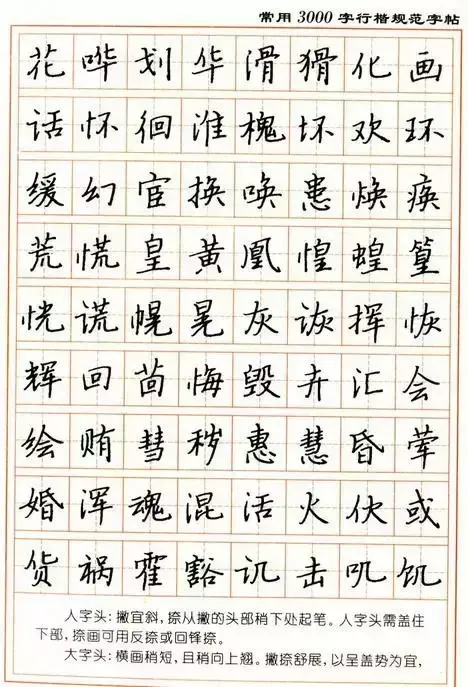 常用3000字行楷规范字帖
花哗划华滑猾化画
话怀徊淮槐坏欢环
缓幻宦换唤患焕痪
荒慌皇黄凰惶蝗篁
恍谎幌晃灰诙挥恢
辉回茴悔毁卉汇会
绘贿彗秽惠慧昏荤
婚浑魂混活火伙或
货祸霍豁讥击叽饥
人字头：撇宜斜，捺从撇的头部稍下处起笔。人字头需盖住
下部，捺画可用反捺或回锋捺。
大字头：横画稍短，且稍向上翘。撇捺舒展，以呈盖势为宜，